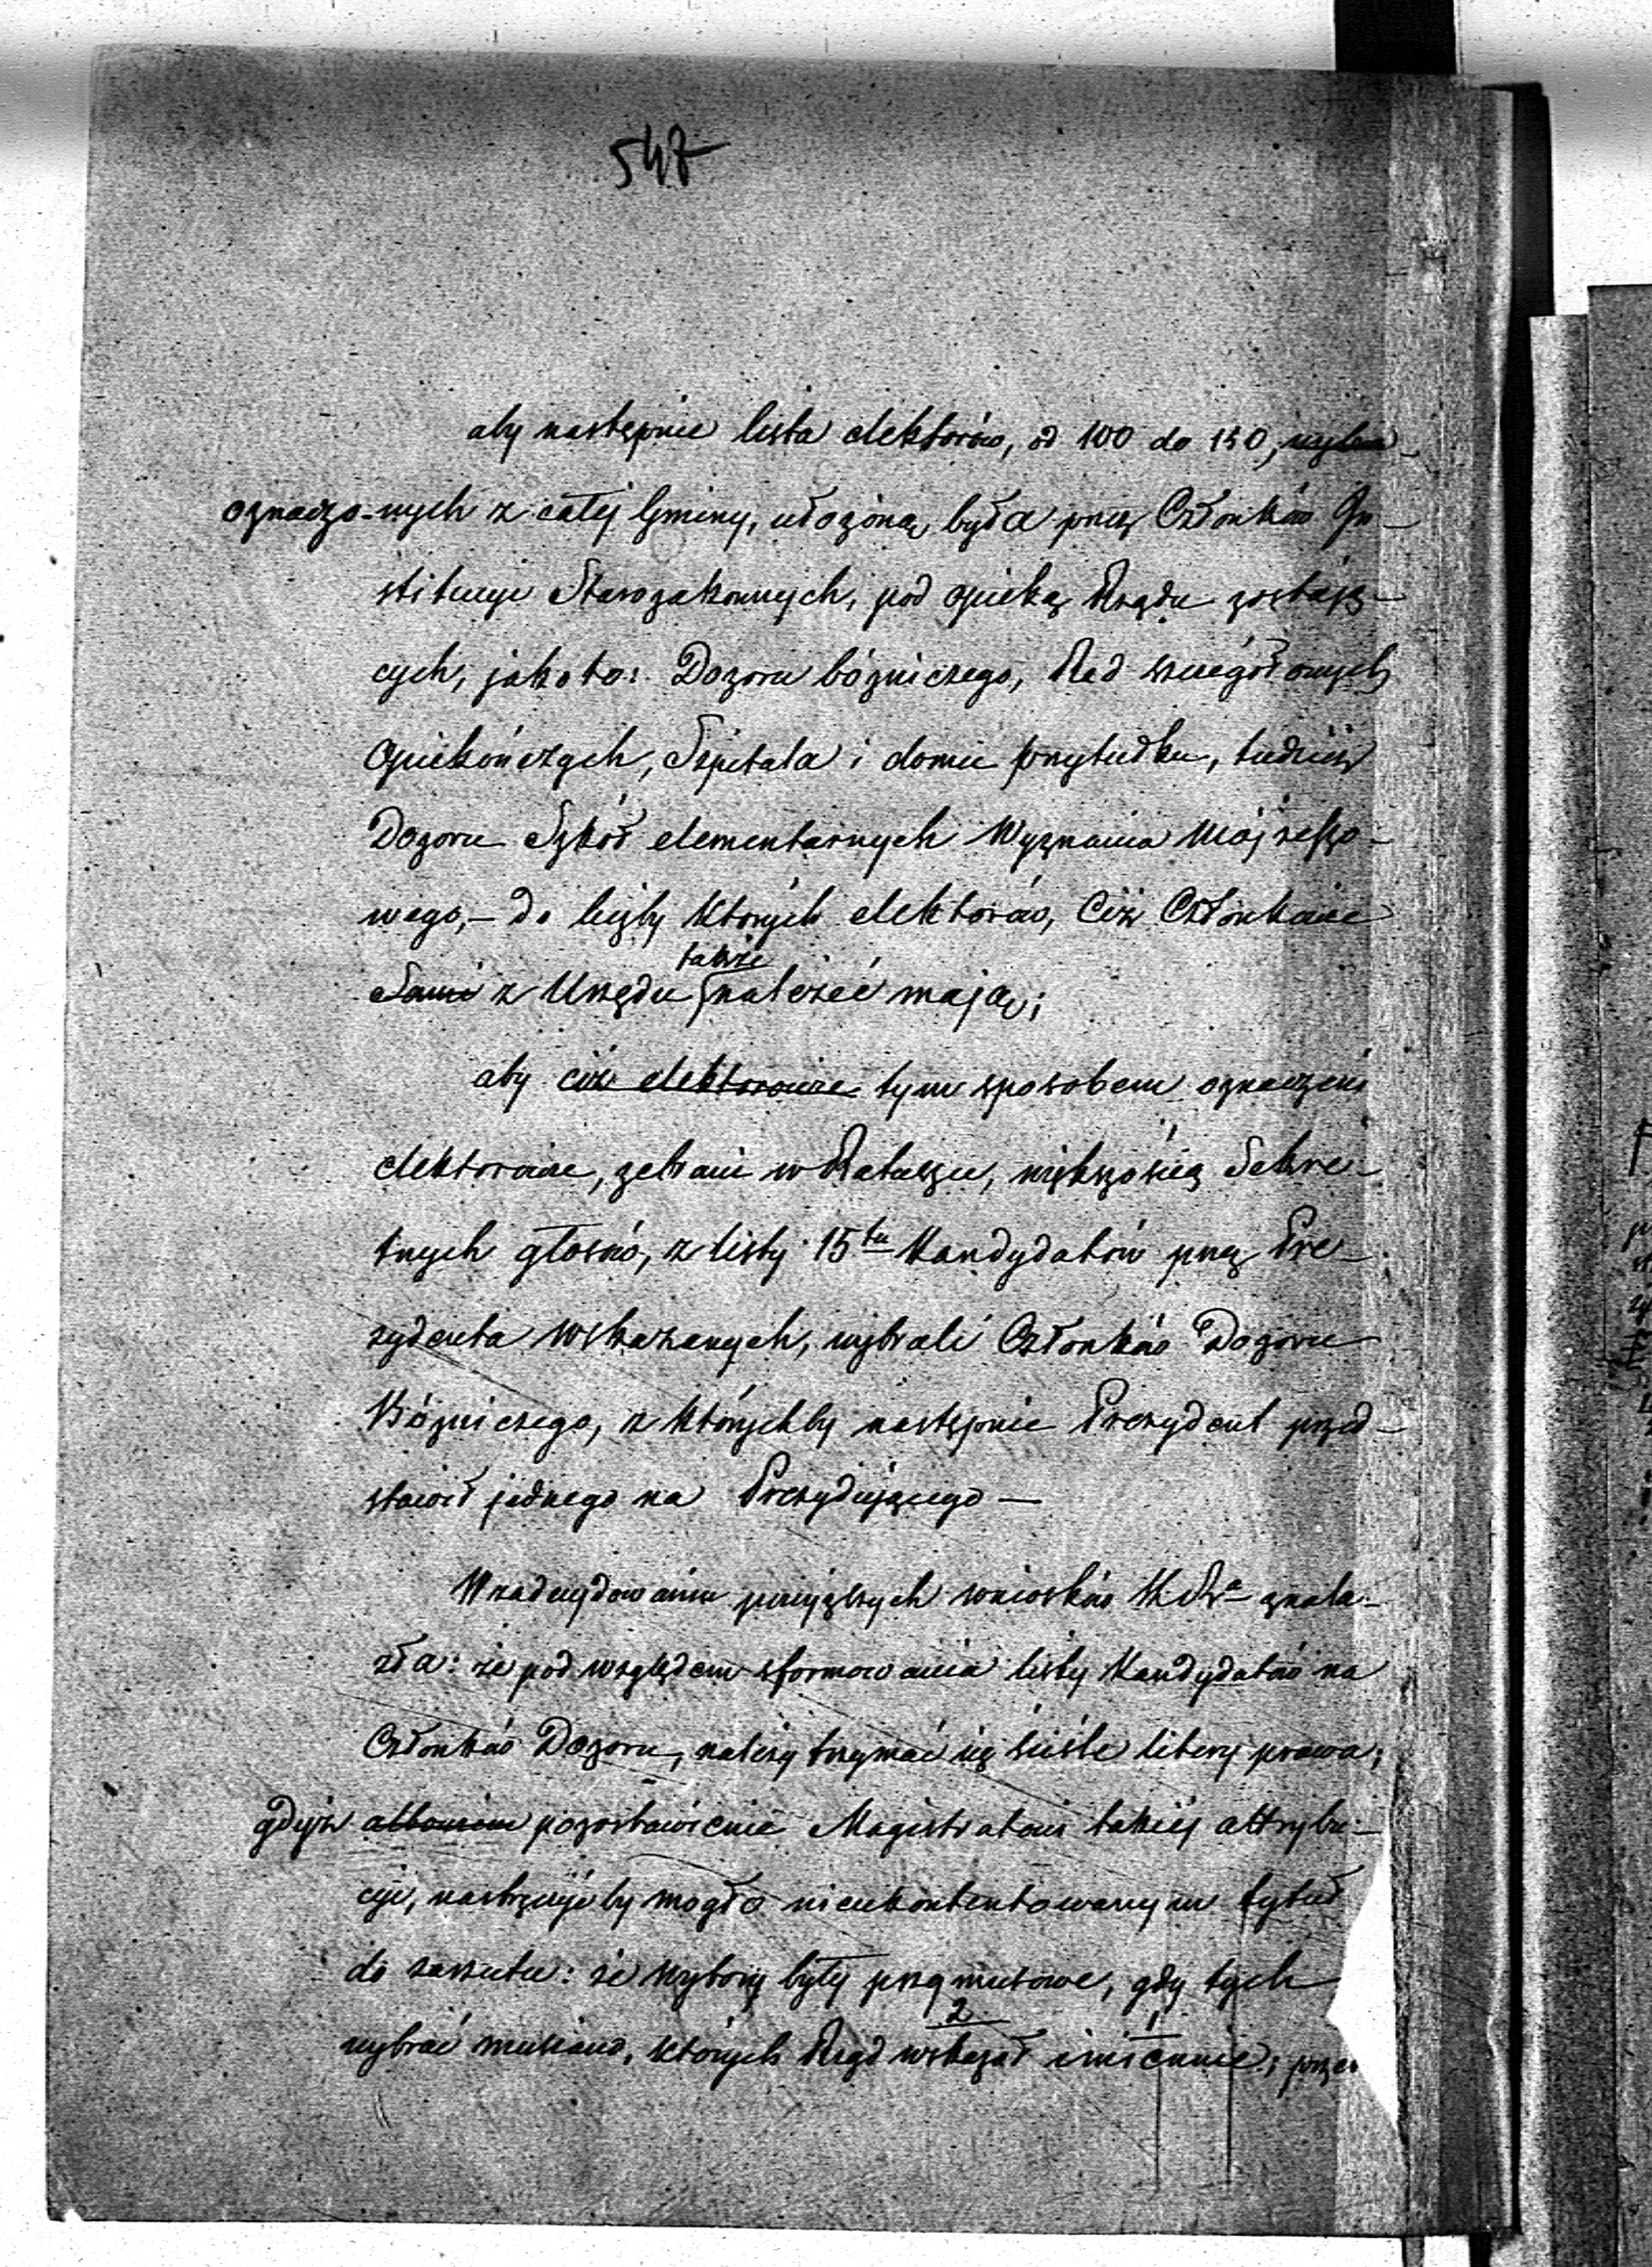 547
aby następnie lista elektorów, od 100 do 150, wybra-
oznaczo-nych z całéj Gminy, ułożoną była przez Członków In-
stitucyi Starozakonnych, pod opieką Rządu zostają-
cych, jakoto: Dozoru bóżniczego, Rad szczegółowych
opiekuńczych, Szpitala i domu przytułku, tudzież
Dozoru Szkół elementarnych Wyznania Mojżeszo-
wego,- do liczby których elektorów, Ciż Członkowie
także
Sami z Urzędu należeć mają;
aby ciż elektorowie tym sposobem oznaczeni
elektorowie, zebrani w Ratuszu, większością Sekre-
tnych głosów, z listy 15tu Kandydatów przez Pre-
zydenta wskazanych, wybrali Członków Dozoru
Bóżniczego, z którychby następnie Prezydent przed-
stawił jednego na Prezydującego —
W zadecydowaniu powyższych wniosków K Rz znala-
zła: że pod względem sformowania listy Kandydatów na
Członków Dozoru, należy trzymać się ściśle litery prawa;
gdyż albowiem pozostawienie Magistratowi takiéj attrybu-
cyi, nastręczyćby mogło nieukontentowanym tytuł
do zarzutu: że wybory były przymusowe, gdy tych
2
wybrać musiano, których Rząd wskazał imiennie;